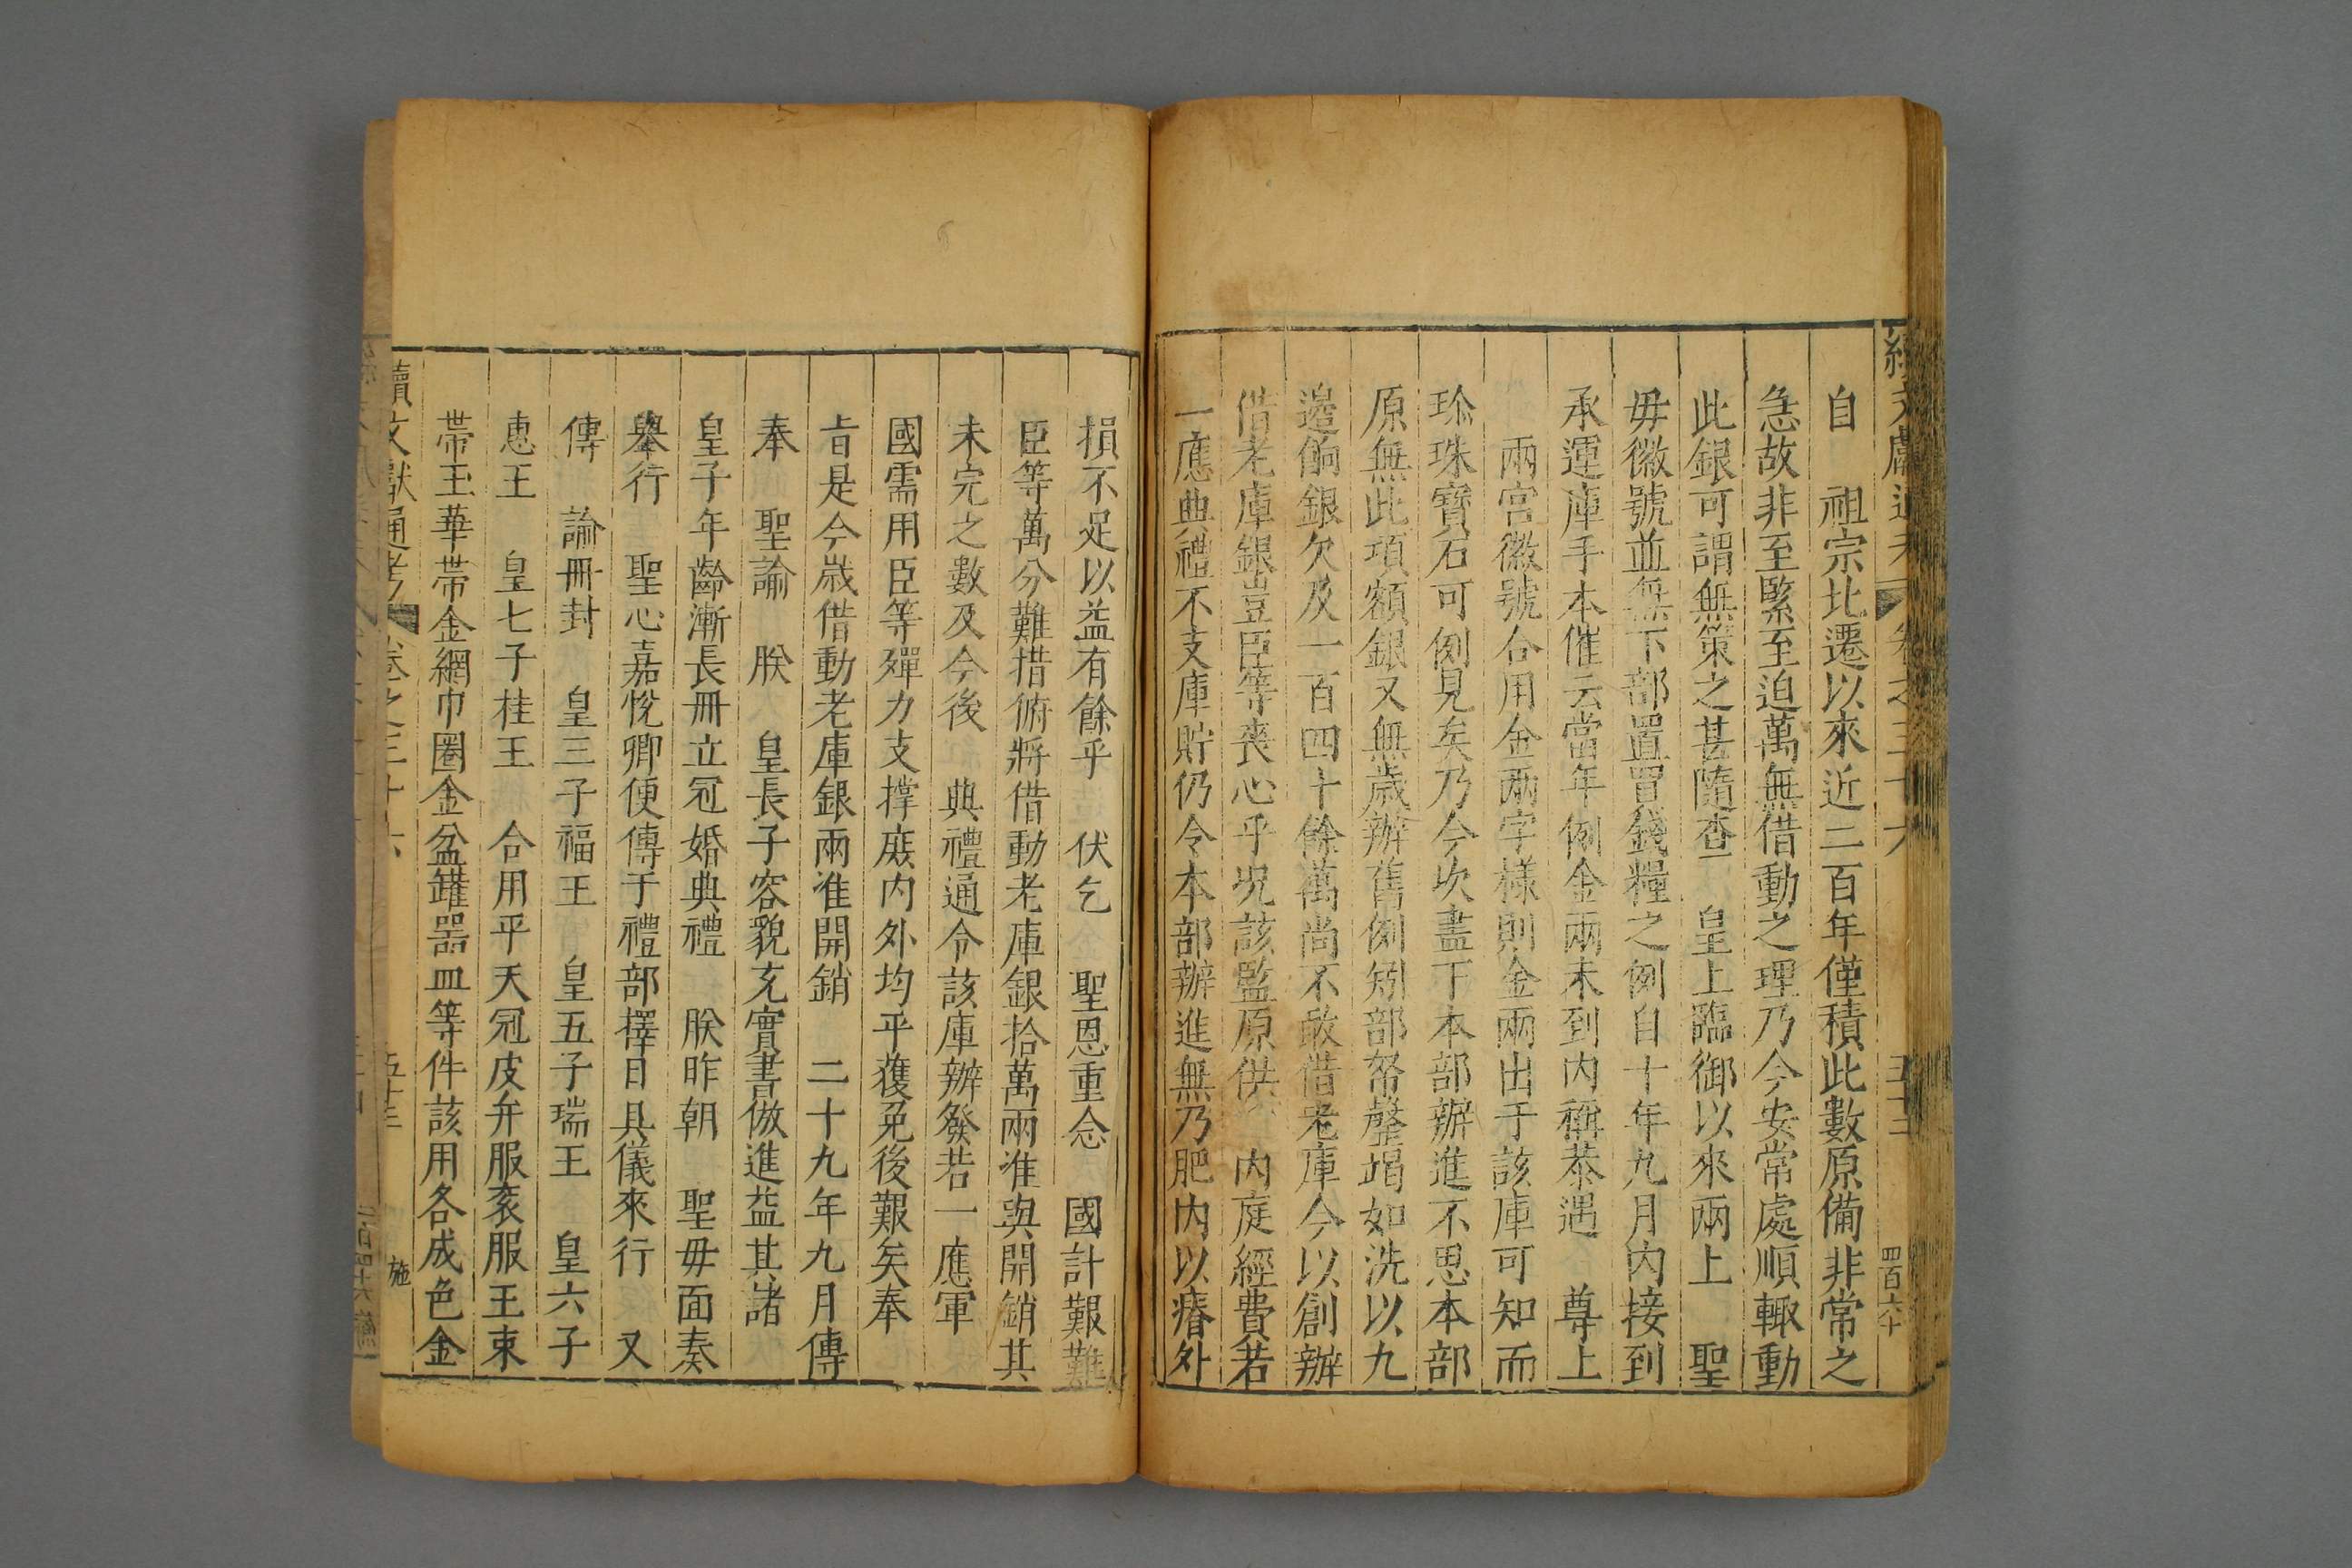 續文獻通考 卷之三十六 五十三 四百六十
自 祖宗北遷以來近二百年僅積此數原備非常之
急故非至緊至迫萬無借動之理乃今安常處順輙動
此銀可謂無策之甚隨查 皇上臨御以來兩上 聖
毋徽號並無下部置買錢糧之例自十年九月內接到
承運庫手本催云當年例金兩未到內稱恭遇 尊上
兩宮徽號合用金兩字樣則金兩出于該庫可知而
珎珠寶石可例見矣乃今次盡下本部辦進不思本部
原無此項額銀又無歲辦舊例矧部帑罄竭如洗以九
邉餉銀欠及一百四十餘萬尚不敢借老庫今以創辦
借老庫銀豈臣等喪心乎况該監原供 內庭經費若
一應典禮不支庫貯仍令本部辦進無乃肥内以瘠外
損不足以益有餘乎 伏乞 聖恩重念 國計艱難
臣等萬分難措俯將借動老庫銀拾萬兩准與開銷其
未完之數及今後 典禮通令該庫辦發若一應軍
國需用臣等殫力支撑庻内外均平獲免後艱矣奉
㫖是今歲借動老庫銀兩准開銷 二十九年九月傳
奉 聖諭 朕 皇長子容貌充實書倣進益其諸
皇子年齡漸長冊立冠婚典禮 朕昨朝 聖毋面奏
舉行 聖心嘉悅卿便傳于禮部擇日具儀來行 又
傳 諭冊封 皇三子福王 皇五子瑞王 皇六子
惠王 皇七子桂王 合用平天冠皮弁服衮服玉束
帶玉華帶金網巾圈金盆罐噐皿等件該用各成色金
續文獻通考 卷之三十六 五十三 施